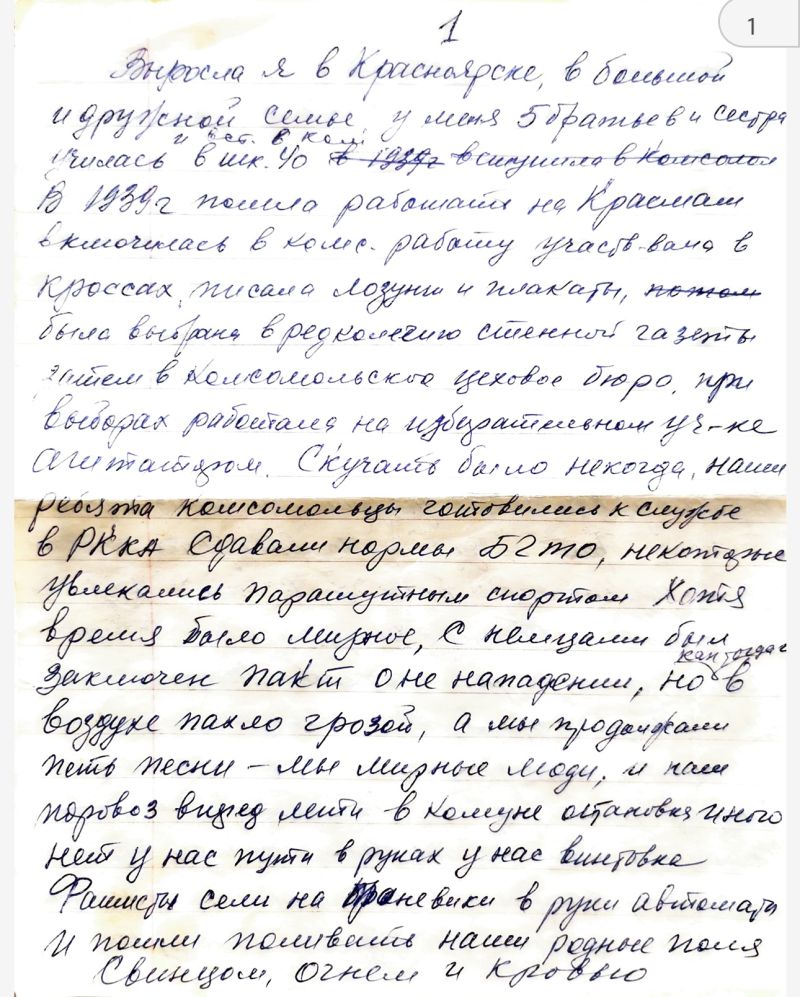 1
1
Выросла я в Красноярске, в большой
и дружной семье, у меня 5 братьев и сестра
и вст. в ком.
училась в шк. 40 в 1939г вступила в комсомол
В 1939г пошла работать на Красмаш
включилась в комс. работу участв-вала в
кроссах, писала лозунги и плакаты, потом
была выбрана в редколегию стенной газеты
затем в Комсомольское цеховое бюро, при
выборах работала на избирательном уч-ке
агитатором. Скучать было некогда, наши
ребята комсомольцы готовились к службе
в РККА Сдавали нормы БГТО, некоторые
увлекались парашутным спортом Хотя
время было мирное, С немцами был
как тогда
заключен пакт о не нападении, но в
воздухе пахло грозой, а мы продолжали
петь песни – мы мирные люди, и наш
поровоз вперед лети в Комуне остановка иного
нет у нас пути в руках у нас винтовка
Фашисты сели на броневики в руки автоматы
И пошли поливать наши родные поля
Свинцом, Огнем и Кровью